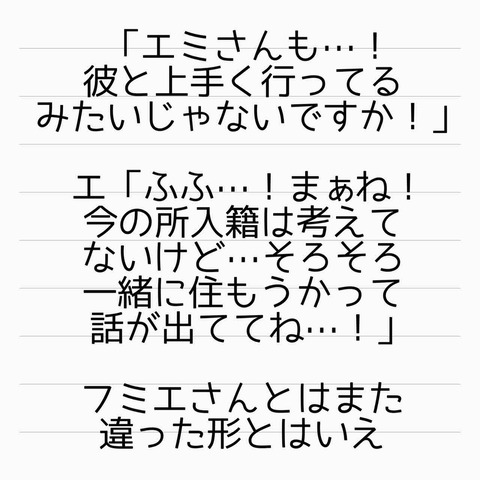 「エミさんも…！
彼と上手く行ってる
みたいじゃないですか！」
エ「ふふ…！まぁね！
今の所入籍は考えて
ないけど…そろそろ
一緒に住もうかって
話が出ててね…！」
フミエさんとはまた
違った形とはいえ